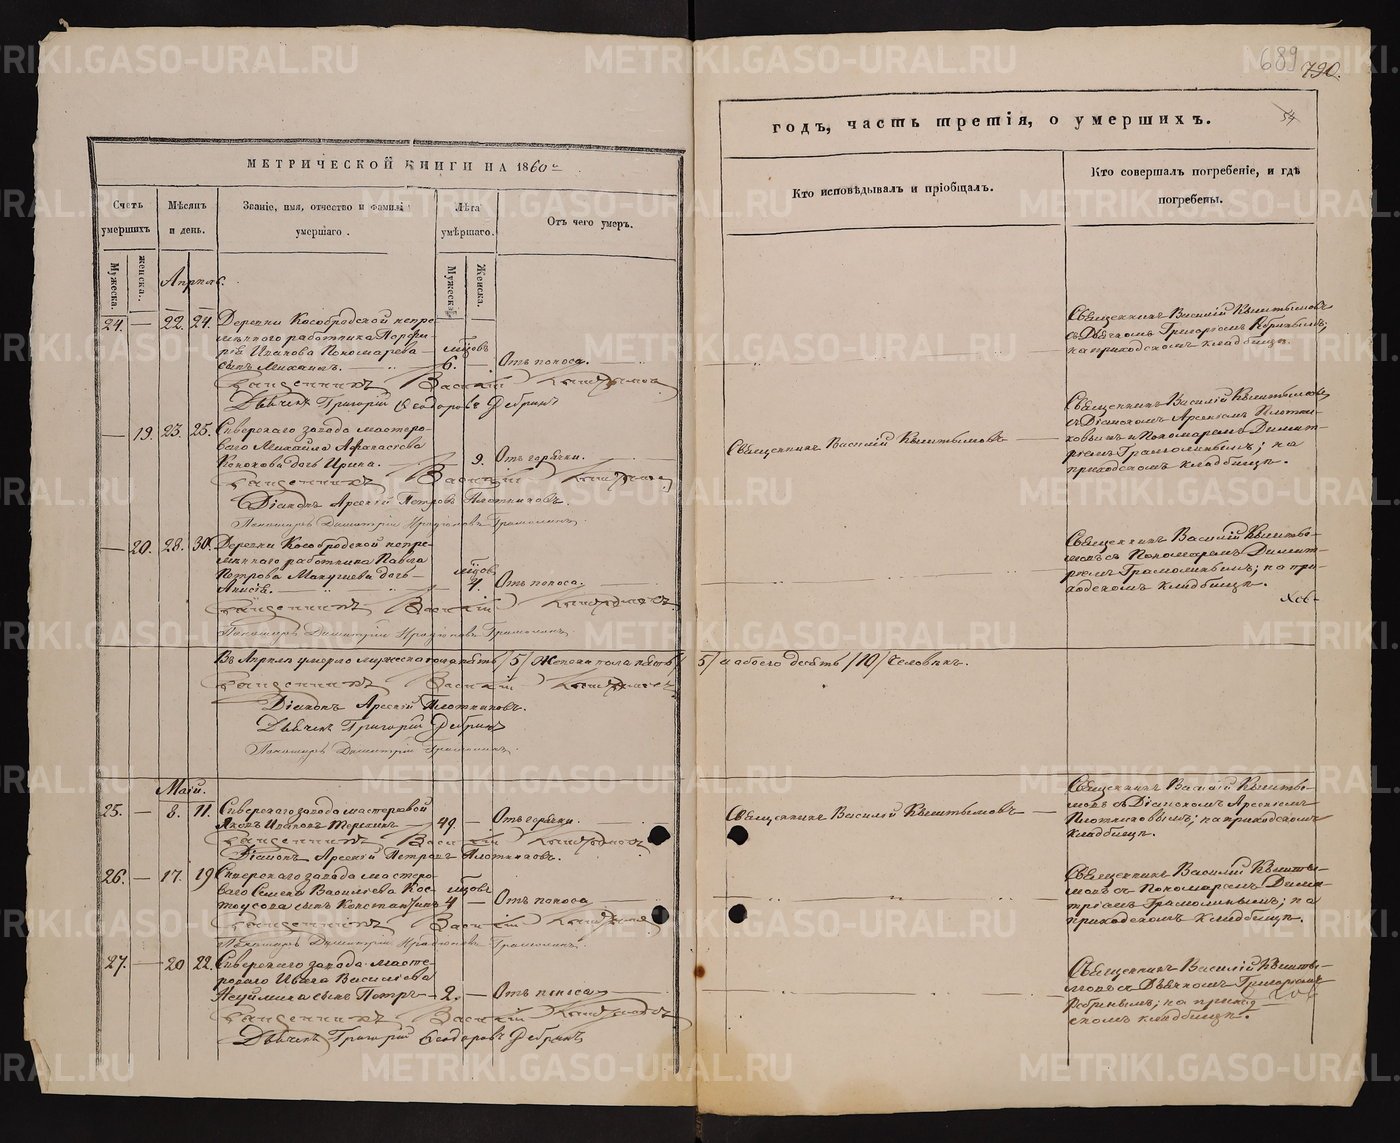 689
790.
54
МЕТРИЧЕСКОЙ КНИГИ НА 1860
годъ, часть третія, о умершихъ.
Счетъ умершихъ
Мѣсяцъ и день.
Званіе, имя, отчество и фамилія умершаго.
Лѣта умѣршаго.
Отъ чего умеръ.
Кто исповѣдывалъ и пріобщалъ.
Кто совершалъ погребеніе, и гдѣ погребены.
Мужеска.
женска.
Мужеска
Женска.
Апрѣль.
24. — 22. 24. Деревни Кособродской непре-
мѣннаго работника Порфи-
рія Иванова Пономарева
сынъ Михаилъ.
мѣсцовъ
6. — Отъ поноса.
Священникъ Василій Кыштымовъ
Дьячекъ Григорій Ѳеодоровъ Ребринъ
Священникъ Василій Кыштымовъ
съ Дьячкомъ Григоріемъ Ребринымъ;
на приходскомъ кладбищѣ.
— 19. 23. 25. Сиверскаго завода мастеро-
ваго Михаила Аѳанасьева
дочь Ирина.
9. Отъ горячки.
Священникъ Василій Кыштымовъ
Діаконъ Арсеній Петровъ Плотниковъ.
Пономарь Димитрій Иродіоновъ Грамолинъ.
Священникъ Василій Кыштымовъ
Священникъ Василій Кыштымовъ
съ Діакономъ Арсеніемъ Плотни-
ковымъ и Пономаремъ Димит-
ріемъ Грамолинымъ; на
приходскомъ кладбищѣ.
— 20. 28. 30. Деревни Кособродской непре-
мѣннаго работника Павла
Петрова дочь
Анисія.
мѣсцовъ
4. Отъ поноса.
Священникъ Василій Кыштымовъ
Пономарь Димитрій Иродіоновъ Грамолинъ.
Священникъ Василій Кышты-
мовъ съ Пономаремъ Димит-
ріемъ Грамолинымъ; на при-
ходскомъ кладбищѣ.
Въ Апрѣлѣ умерло мужеска пола пять /5/ Женска пола пять /5/ и обоего десять /10/ Человѣкъ.
Священникъ Василій Кыштымовъ
Діаконъ Арсеній Плотниковъ.
Дьячекъ Григорій Ребринъ
Пономарь Димитрій Грамолинъ.
Май.
25. — 8. 11. Сиверскаго завода мастеровой
Яковъ Ивановъ Терехинъ
49. — Отъ горячки.
Священникъ Василій Кыштымовъ
Діаконъ Арсеній Петровъ Плотниковъ.
Священникъ Василій Кыштымовъ
Священникъ Василій Кышты-
мовъ съ Діакономъ Арсеніемъ
Плотниковымъ; на приходскомъ
кладбищѣ.
26. — 17. 19 Сиверскаго завода мастеро-
ваго Семена Васильева Кос-
тоусова сынъ Константинъ
мѣсцовъ
4 — Отъ поноса
Священникъ Василій Кыштымовъ
Пономарь Димитрій Иродіоновъ Грамолинъ.
Священникъ Василій Кышты-
мовъ съ Пономаремъ Дими-
тріемъ Грамолинымъ; на
приходскомъ кладбищѣ.
27. — 20 22. Сиверскаго завода масте-
роваго Ивана Васильева
сынъ Петръ — 2. — Отъ поноса
Священникъ Василій Кыштымовъ
Дьячекъ Григорій Ѳеодоровъ Ребринъ
Священникъ Василій Кышты-
мовъ съ Дьячкомъ Григоріемъ
Ребринымъ; на приход-
скомъ кладбищѣ.
METRIKI.GASO-URAL.RU